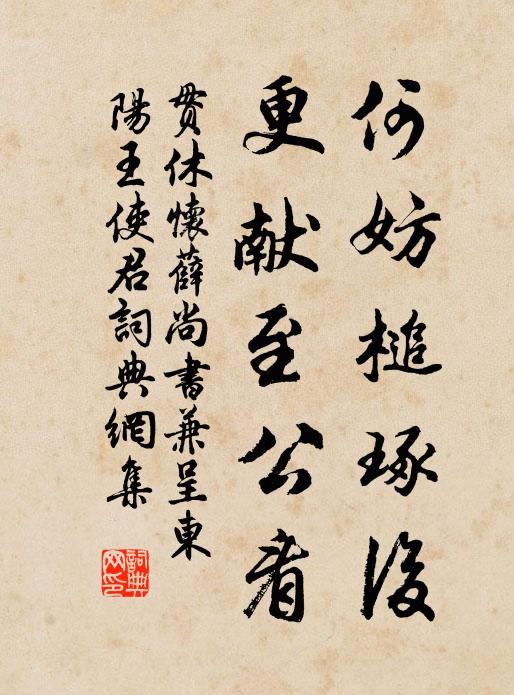 何妨槌琢後
更献至公看
貫休懷薛尚書兼呈東
陽王使君詞典網集
詞典網印